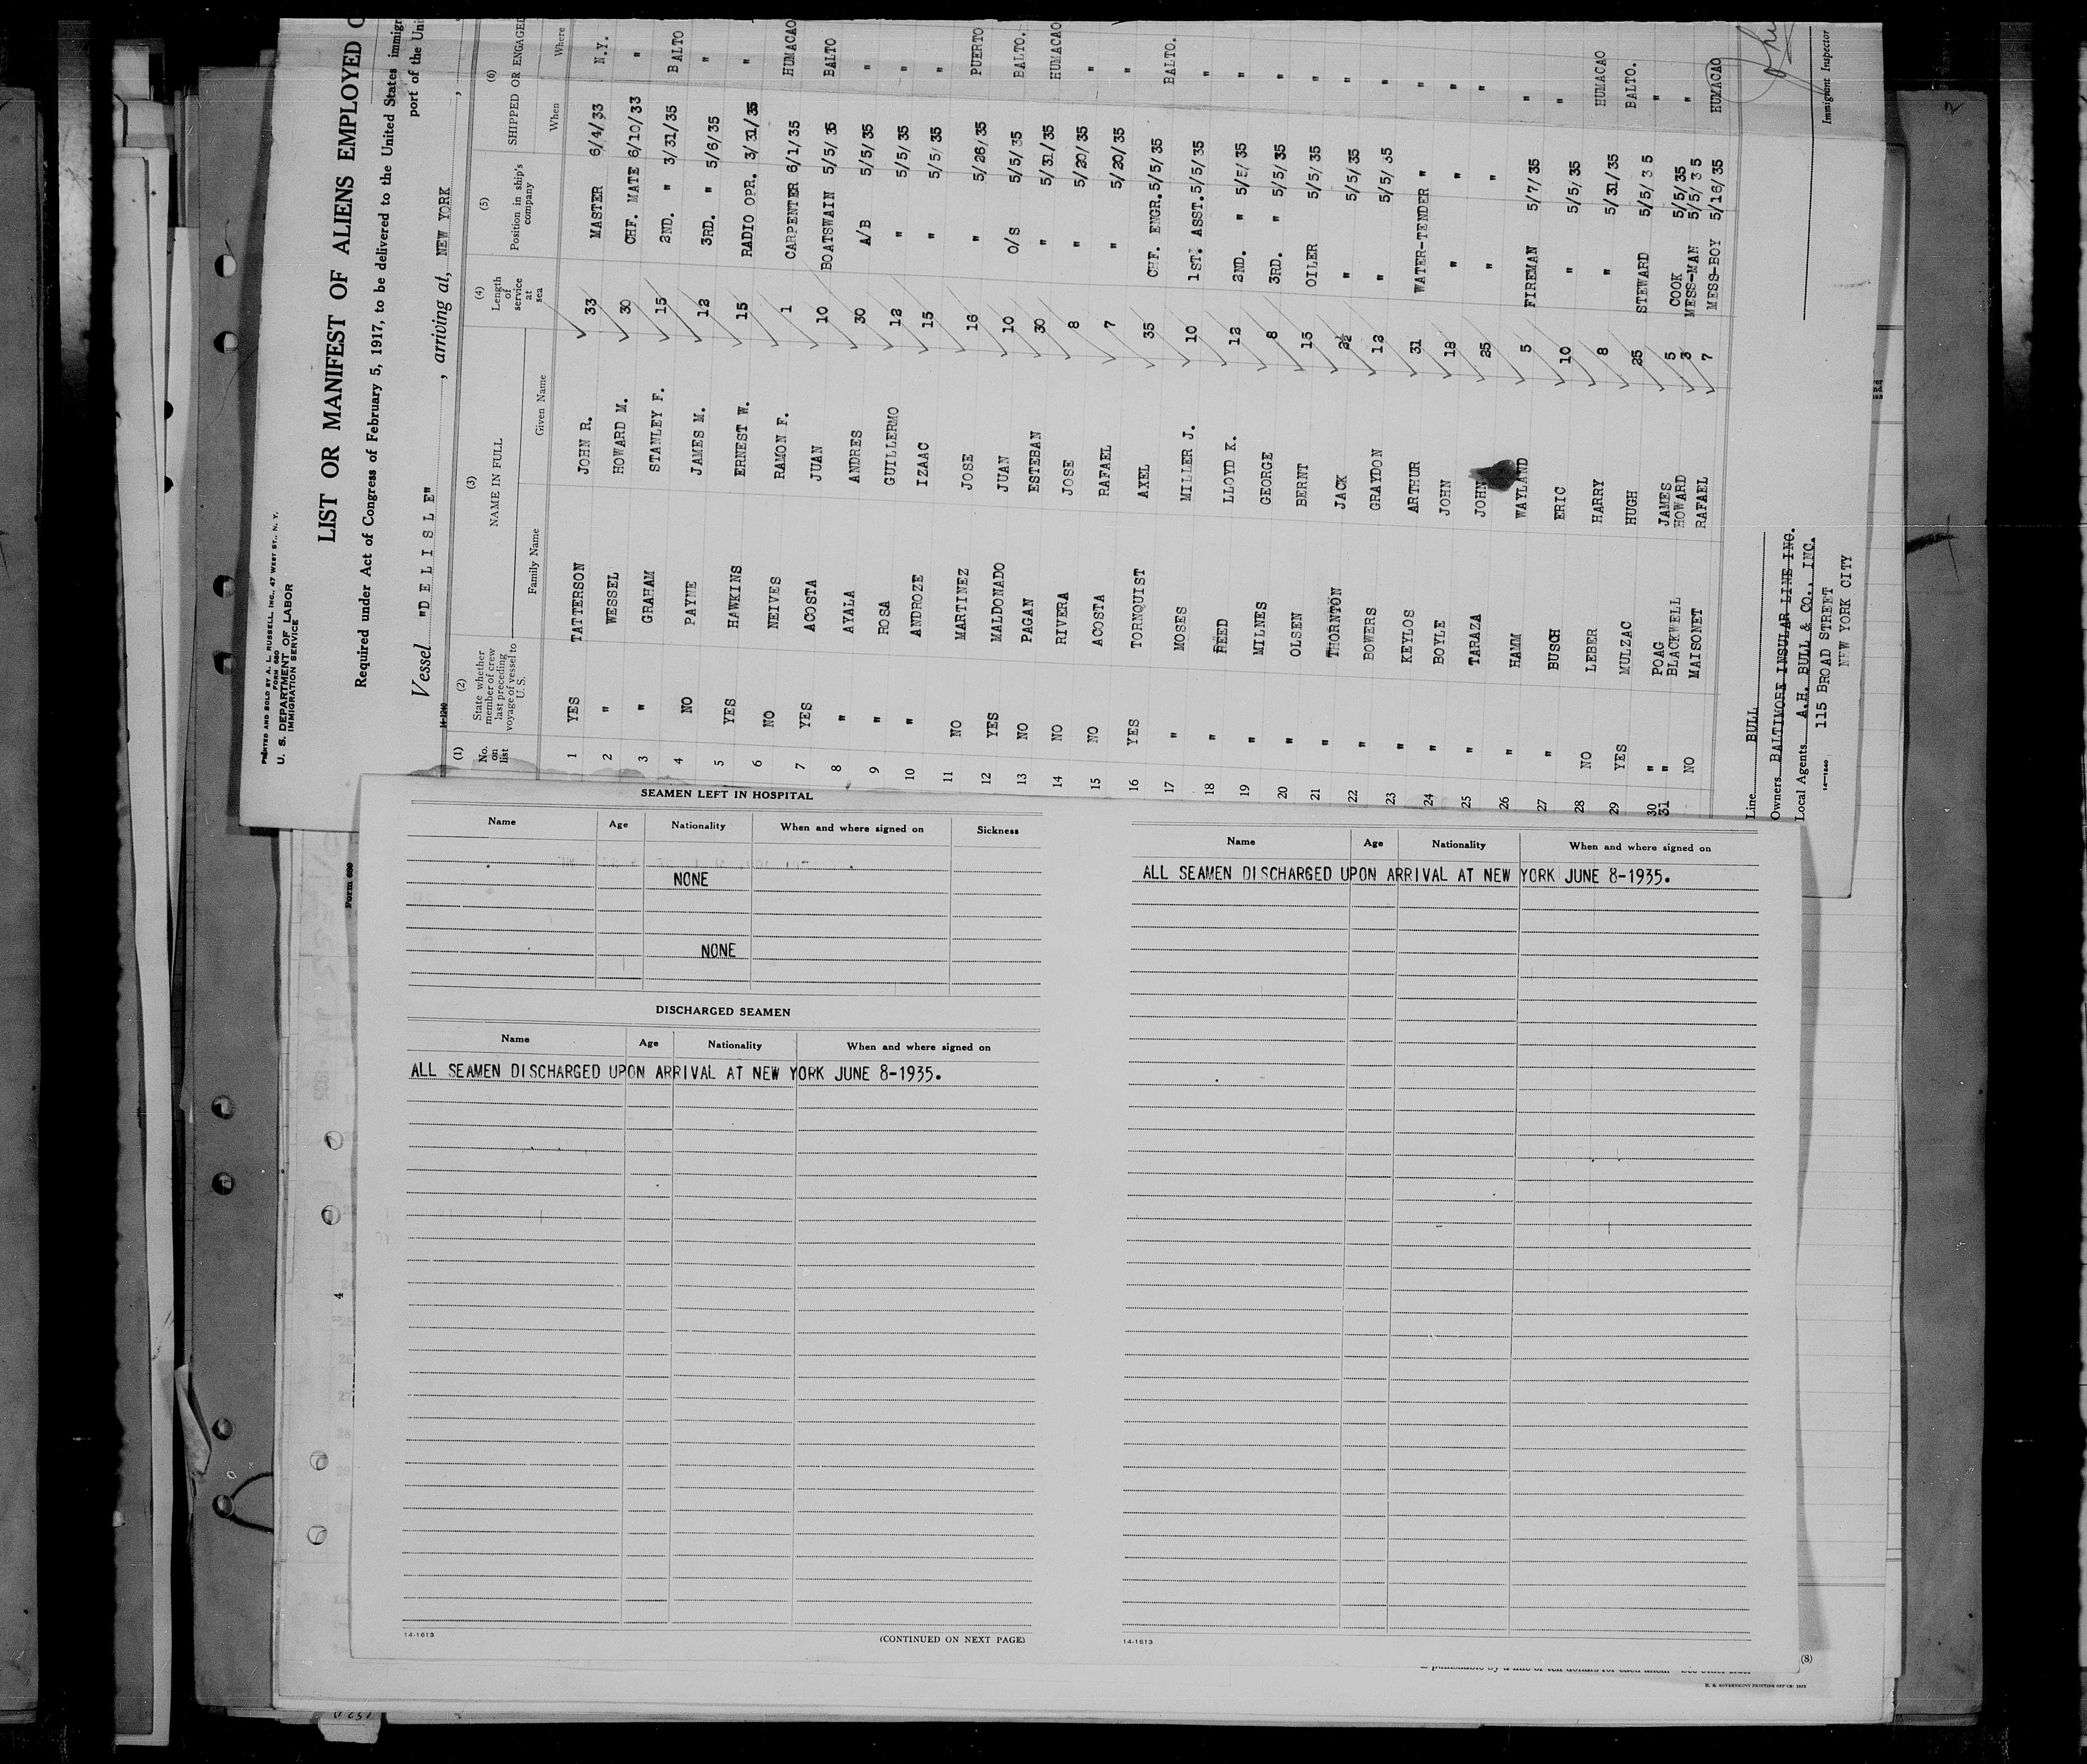 PRINTED AND SOLD BY A. L. RUSSELL, INC., 47 WEST ST., N. Y.
FORM 680
U. S. DEPARTMENT OF LABOR
IMMIGRATION SERVICE
LIST OR MANIFEST OF ALIENS EMPLOYED
Required under Act of Congress of February 5, 1917, to be delivered to the United States
port of the
Vessel "DELISLE", arriving at, NEW YORK,
14-1240
(1) (2) (3) (4) (5) (6)
No. on list State whether member of crew last preceding voyage of vessel to U. S. NAME IN FULL Length of service at sea Position in ship's company SHIPPED OR ENGAGED
Family Name Given Name When Where
1 YES TATTERSON JOHN R. 33 MASTER 6/4/33 N.Y.
2 " WESSEL HOWARD M. 30 CHF. MATE 6/10/33 "
3 " GRAHAM STANLEY F. 15 2ND. " 3/31/35 BALTO
4 NO PAYNE JAMES M. 12 3RD. " 5/6/35 "
5 YES HAWKINS ERNEST W. 15 RADIO OPR. 3/31/35 "
6 NO NEIVES RAMON F. 1 CARPENTER 6/1/35 HUMACAO
7 YES ACOSTA JUAN 10 BOATSWAIN 5/5/35 BALTO
8 " AYALA ANDRES 30 A/B 5/5/35 "
9 " ROSA GUILLERMO 12 " 5/5/35 "
10 " ANDROZE IZAAC 15 " 5/5/35 "
11 NO MARTINEZ JOSE 16 " 5/26/35 PUERTO
12 YES MALDONADO JUAN 10 O/S 5/5/35 BALTO.
13 NO PAGAN ESTEBAN 30 " 5/31/35 HUMACAO
14 NO RIVERA JOSE 8 " 5/20/35 "
15 NO ACOSTA RAFAEL 7 " 5/20/35 "
16 YES TORNQUIST AXEL 35 CHF. ENGR. 5/5/35 BALTO.
17 " MOSES MILLER J. 10 1ST. ASST. 5/5/35 "
18 " REED LLOYD K. 12 2ND. " 5/5/35 "
19 " MILNES GEORGE 8 3RD. " 5/5/35 "
20 " OLSEN BERNT 15 OILER 5/5/35 "
21 " THORNTON JACK 2½ " 5/5/35 "
22 " BOWERS GRAYDON 12 " 5/5/35 "
23 " KEYLOS ARTHUR 31 WATER-TENDER " "
24 " BOYLE JOHN 18 " " "
25 " TARAZA JOHN 25 " " "
26 " HAMM WAYLAND 5 FIREMAN 5/7/35 "
27 " BUSCH ERIC 10 " 5/5/35 "
28 NO LEBER HARRY 8 " 5/31/35 HUMACAO
29 YES MULZAC HUGH 25 STEWARD 5/5/35 BALTO.
30 " POAG JAMES 5 COOK 5/5/35 "
31 " BLACKWELL HOWARD 3 MESS-MAN 5/5/35 "
NO MAISONET RAFAEL 7 MESS-BOY 5/16/35 HUMACAO
Line BULL
Owners BALTIMORE INSULAR LINE INC.
Local Agents A.H. BULL & CO., INC.
115 BROAD STREET
NEW YORK CITY
16-1240
Immigrant Inspector
Form 680
4
SEAMEN LEFT IN HOSPITAL
Name Age Nationality When and where signed on Sickness
NONE
NONE
DISCHARGED SEAMEN
Name Age Nationality When and where signed on
ALL SEAMEN DISCHARGED UPON ARRIVAL AT NEW YORK JUNE 8-1935.
14-1613
(CONTINUED ON NEXT PAGE)
Name Age Nationality When and where signed on
ALL SEAMEN DISCHARGED UPON ARRIVAL AT NEW YORK JUNE 8-1935.
14-1613
(8)
U. S. GOVERNMENT PRINTING OFFICE